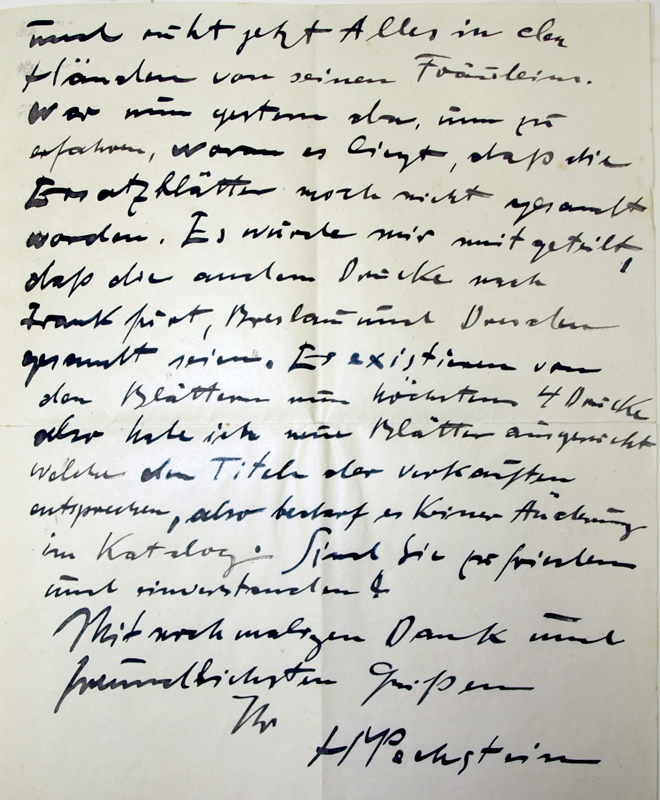 und ruht jetzt Alles in den
Händen von seinen Fräuleins.
War nun gestern da, um zu
erfahren, woran es liegt, daß die
Ersatzblätter noch nicht gesandt
worden. Es würde mir mitgeteilt,
daß die andern Drucke nach
Frankfurt, Breslau und Dresden
gesandt seien. Es existieren von
den Blättern nur höchstens 4 Drucke
also habe ich neue Blätter ausgesucht
welche den Titeln der verkauften
entsprechen, also bedarf es keiner Änderung
im Katalog. Sind Sie zufrieden
und einverstanden?
Mit nochmaligen Dank und
freundlichsten Grüßen
Ihr
HMPechstein